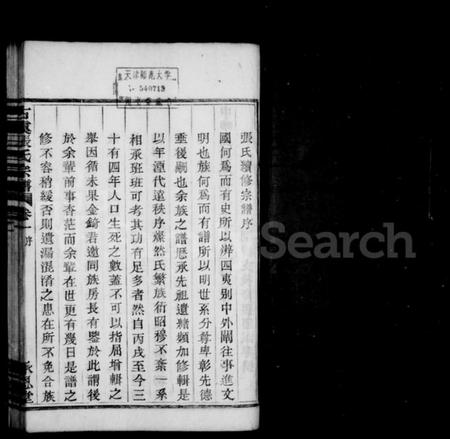 張氏續修宗譜序
國何爲而有史所以辨四夷別中外闡往事進文
明也族何爲而有譜所以明世系分尊卑彰先德
垂後嗣也余族之譜歷承先祖遺緖頻加修輯是
以年湮代遠秩序燦然氏繁族衍昭穆不紊一系
相承班班可考其功有足多者然自丙戌至今三
十有四年人口生死之數蓋不可以指屈增輯之
舉因循未果金錡君邀同族房長有鑒於此謂後
於余輩前事杳茫而余輩在世更有幾日是譜之
修不容稍緩否則遺漏混淆之患在所不免合族
張氏宗譜
卷一
序
承恩堂
天津師范大學
540713
Search